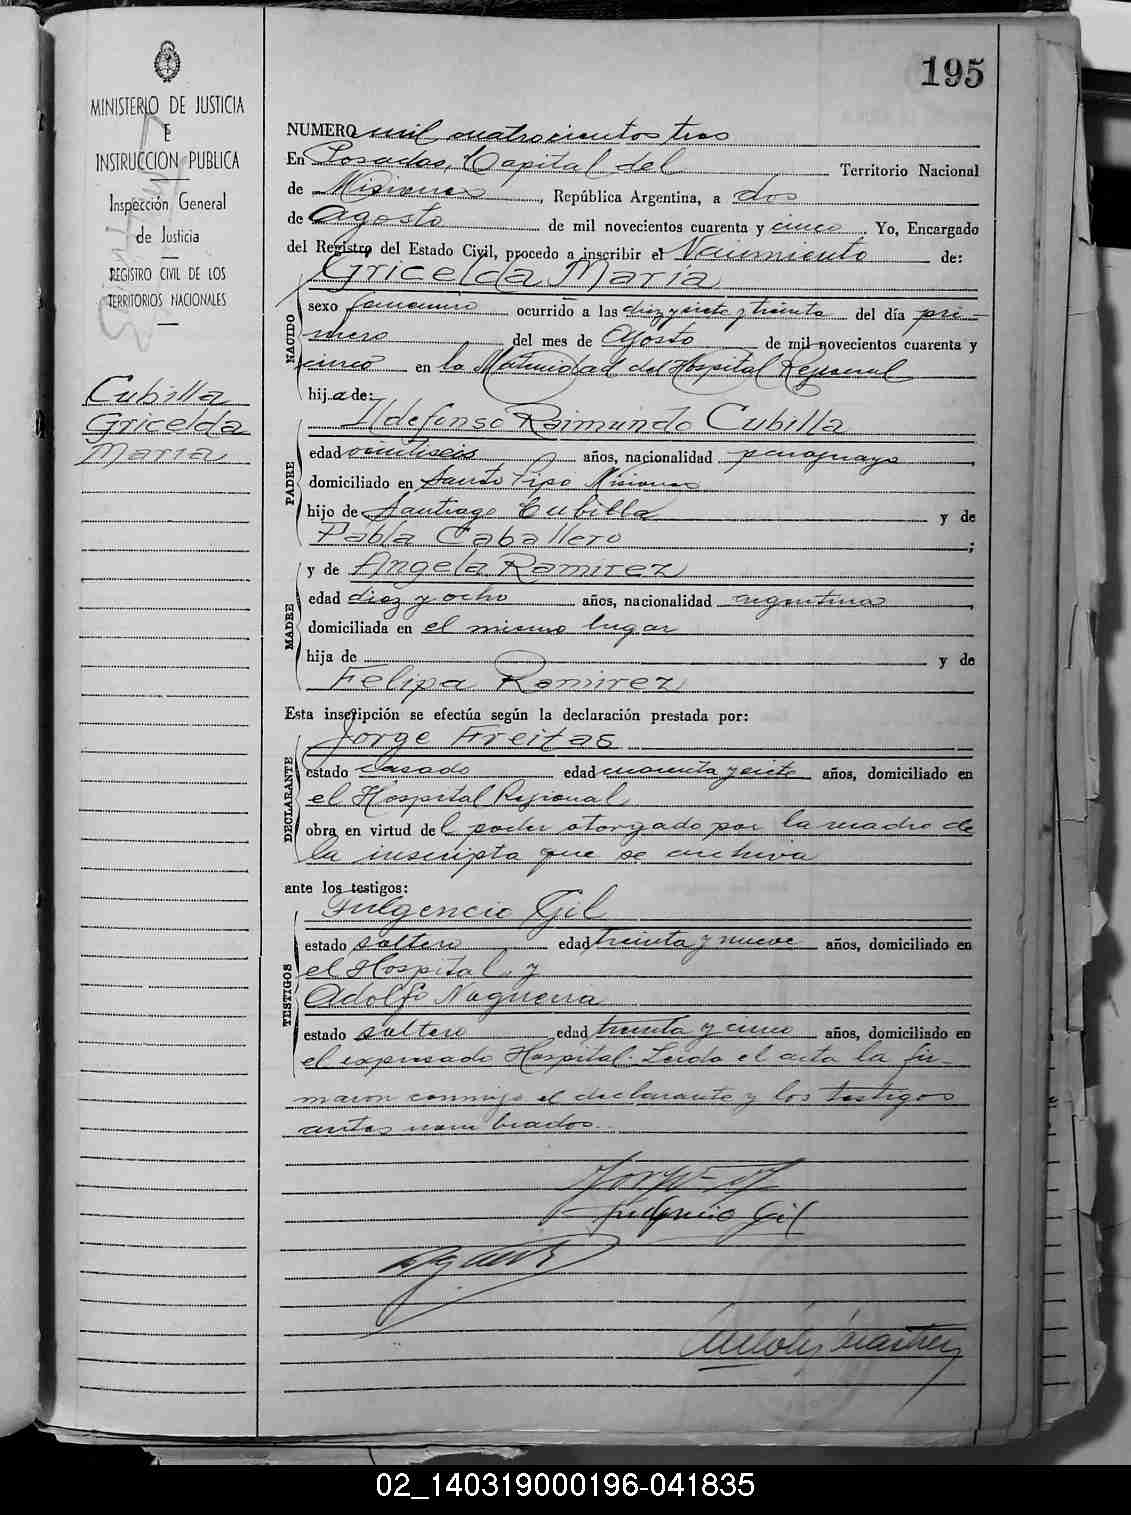 195
MINISTERIO DE JUSTICIA
E
INSTRUCCION PUBLICA
Inspección General
de Justicia
REGISTRO CIVIL DE LOS
TERRITORIOS NACIONALES
Cubilla
Gricelda
María
NUMERO mil cuatrocientos tres
En Posadas, Capital del Territorio Nacional
de Misiones, República Argentina, a dos
de Agosto de mil novecientos cuarenta y cinco. Yo, Encargado
del Registro del Estado Civil, procedo a inscribir el Nacimiento de:
Gricelda María
NACIDO
sexo femenino ocurrido a las diez y siete y treinta del día pri-
mero del mes de Agosto de mil novecientos cuarenta y
cinco en la Maternidad del Hospital Regional
hija de:
Ildefonso Raimundo Cubilla
PADRE
edad veintiseis años, nacionalidad paraguayo,
domiciliado en Santo Pipo Misiones
hijo de Santiago Cubilla y de
Pabla Caballero;
y de Angela Ramirez
MADRE
edad diez y ocho años, nacionalidad argentina,
domiciliada en el mismo lugar
hija de y de
Felipa Ramirez
Esta inscripción se efectúa según la declaración prestada por:
Jorge Freitas
DECLARANTE
estado casado edad cuarenta y siete años, domiciliado en
el Hospital Regional
obra en virtud del poder otorgado por la madre de
la inscripta que se archiva
ante los testigos:
Fulgencio Gil
TESTIGOS
estado soltero edad treinta y nueve años, domiciliado en
el Hospital y
Adolfo Noguera
estado soltero edad treinta y cinco años, domiciliado en
el expresado Hospital. Leida el acta la fir-
maron conmigo el declarante y los testigos
antes nombrados.
Fulgencio Gil
02_140319000196-041835